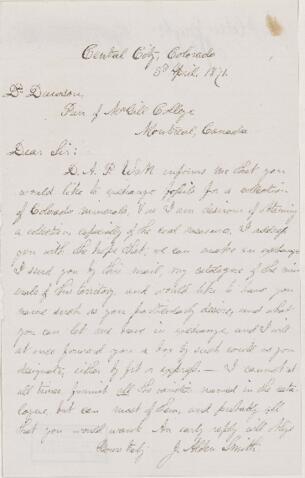 Central City, Colorado
5th April, 1871.
Dr Dawson,
Prin. of McGill College
Montreal, Canada
Dear Sir:
D. A. P. Watt informs me that you
would like to exchange fossils for a collection
of Colorado minerals, & as I am desirous of obtaining
a collection especially of the coal measures, I address
you with the hope that, we can make an exchange
I send you by this mail, my catalogue of the min
erals of this territory, and would like to have you
name such as you particularly desire, and what
you can let me have in exchange, and I will
at once forward you a box by such route as you
designate, either by frt or express. — I cannot at
all times furnish all the varieties named in the cata-
logue, but can most of them, and probably all
that you would want. An early reply will oblige
Yours truly J. Alden Smith